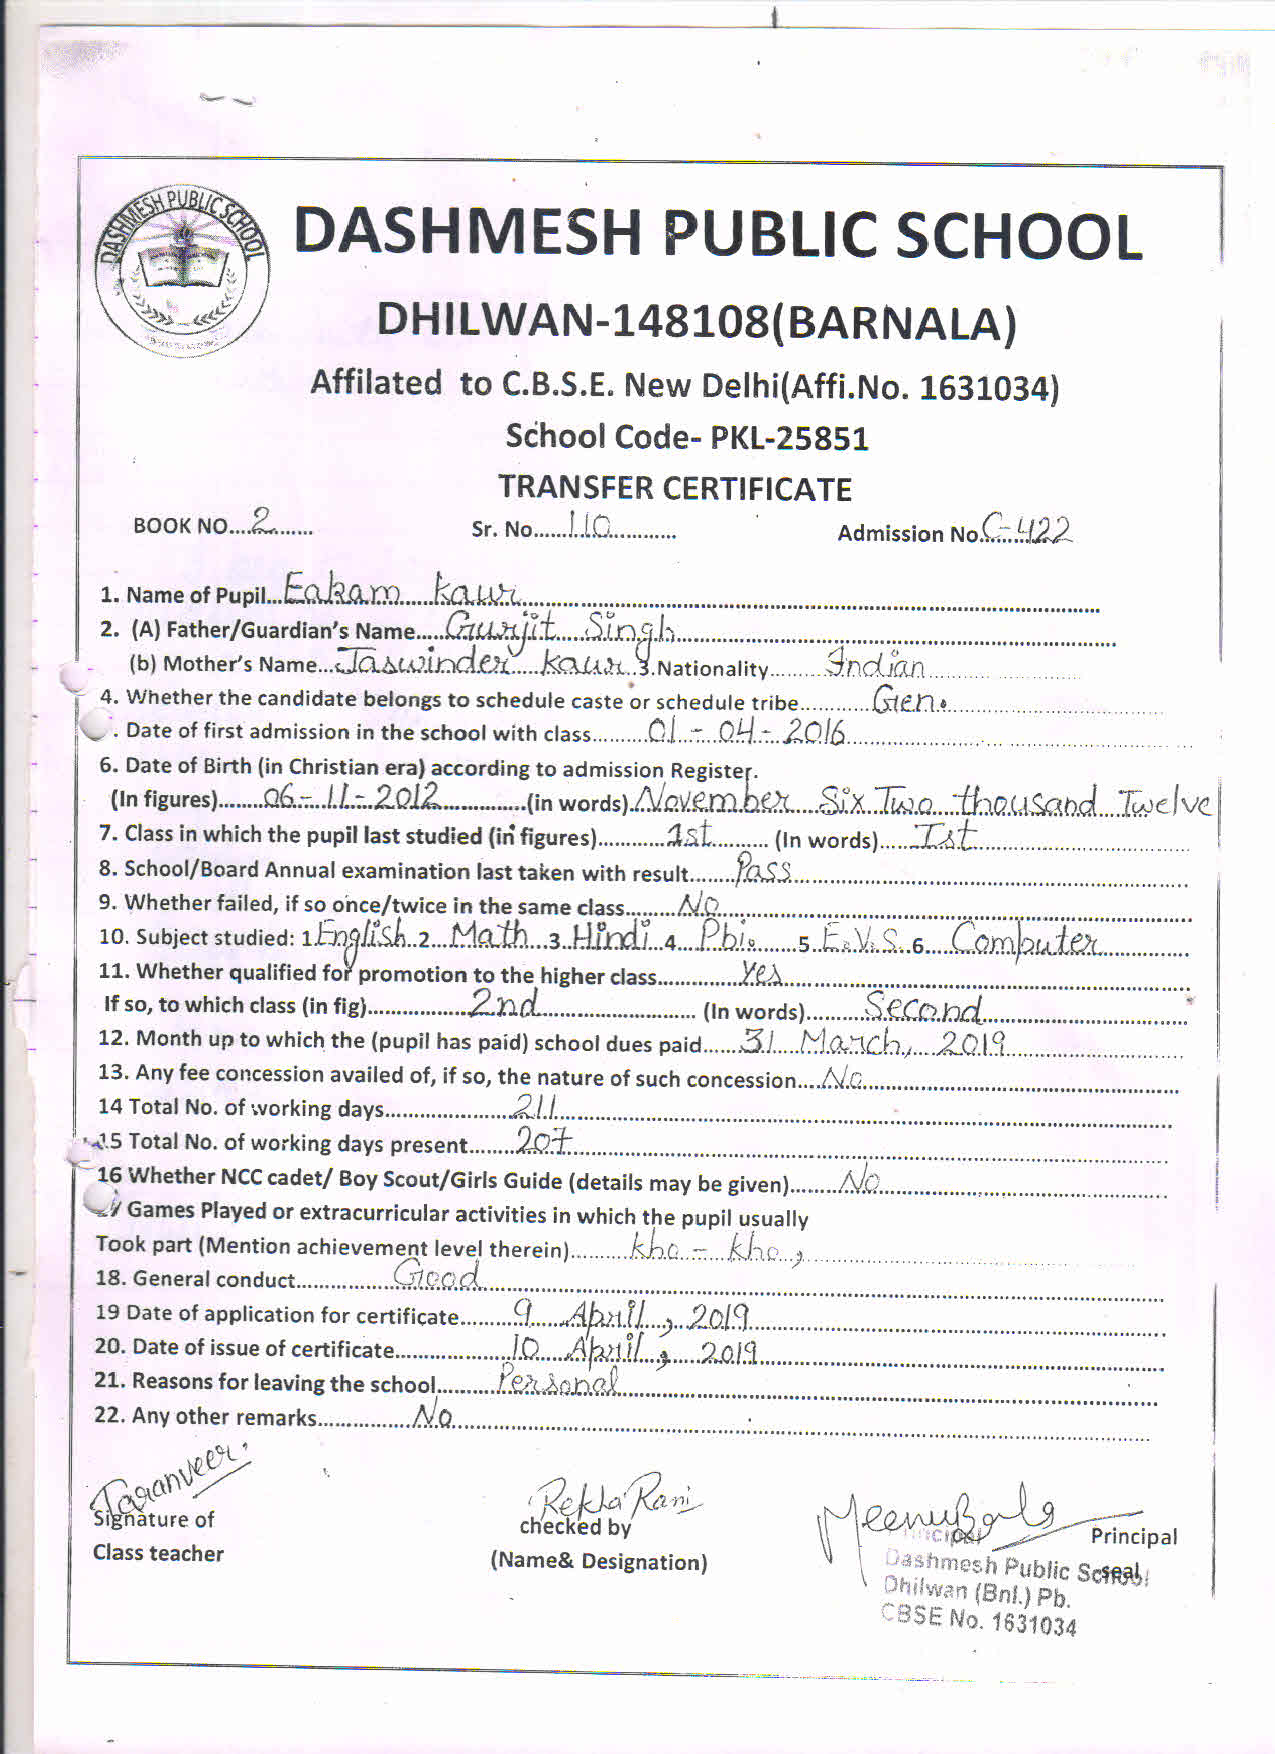 DASHMESH PUBLIC SCHOOL
DASHMESH PUBLIC SCHOOL
DHILWAN-148108(BARNALA)
Affilated to C.B.S.E. New Delhi(Affi.No. 1631034)
School Code- PKL-25851
TRANSFER CERTIFICATE
BOOK NO....2....... Sr. No......110............ Admission No.C-422
1. Name of Pupil...Eakam Kaur
2. (A) Father/Guardian's Name.....Gurjit Singh
(b) Mother's Name...Jaswinder Kaur 3.Nationality.........Indian
4. Whether the candidate belongs to schedule caste or schedule tribe...........Gen.
. Date of first admission in the school with class.........01-04-2016
6. Date of Birth (in Christian era) according to admission Register.
(In figures)........06-11-2012..............(in words).November Six Two thousand Twelve
7. Class in which the pupil last studied (in figures)............1st......... (In words)......Ist
8. School/Board Annual examination last taken with result.......Pass
9. Whether failed, if so once/twice in the same class........No
10. Subject studied: 1.English..2...Math...3..Hindi..4....Pbi.......5..E.V.S..6....Computer
11. Whether qualified for promotion to the higher class..............Yes
If so, to which class (in fig).................2nd............................ (In words)..........Second
12. Month up to which the (pupil has paid) school dues paid......31 March, 2019
13. Any fee concession availed of, if so, the nature of such concession....No
14 Total No. of working days......................211
15 Total No. of working days present........207
16 Whether NCC cadet/ Boy Scout/Girls Guide (details may be given)........No
Games Played or extracurricular activities in which the pupil usually
Took part (Mention achievement level therein)..........Kho - Kho,
18. General conduct.................Good
19 Date of application for certificate.........9 April, 2019
20. Date of issue of certificate....................10 April, 2019
21. Reasons for leaving the school..........Personal
22. Any other remarks................No
Taranveer
Signature of
Class teacher
Rekha Rani
checked by
(Name& Designation)
Meenu Bala
Principal Principal
seal
Dashmesh Public School
Dhilwan (Bnl.) Pb.
CBSE No. 1631034